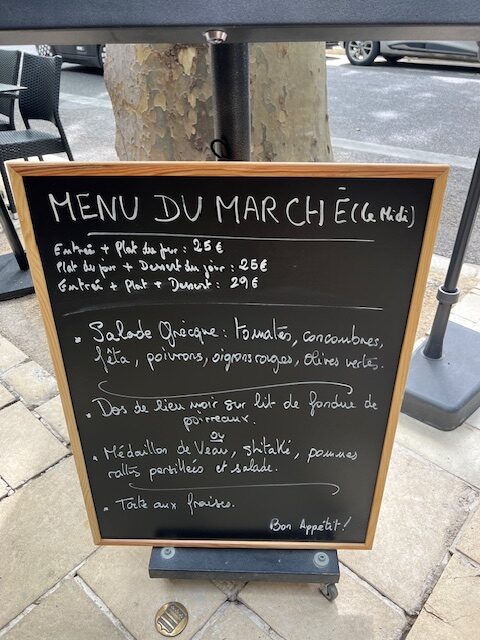 MENU DU MARCHÉ (Le Midi)
Entreé + Plat du jour : 25€
Plat du jour + Dessert du jour : 25€
Entreé + Plat + Dessert : 29€
Salade Grècque : tomates, concombres,
fêta, poivrons, oignons rouges, olives vertes.
Dos de lieu noir sur lit de fondue de
poireaux.
ou
Médaillon de Veau, shitaké, pommes
rattes persillées et salade.
Tarte aux fraises.
Bon Appétit !